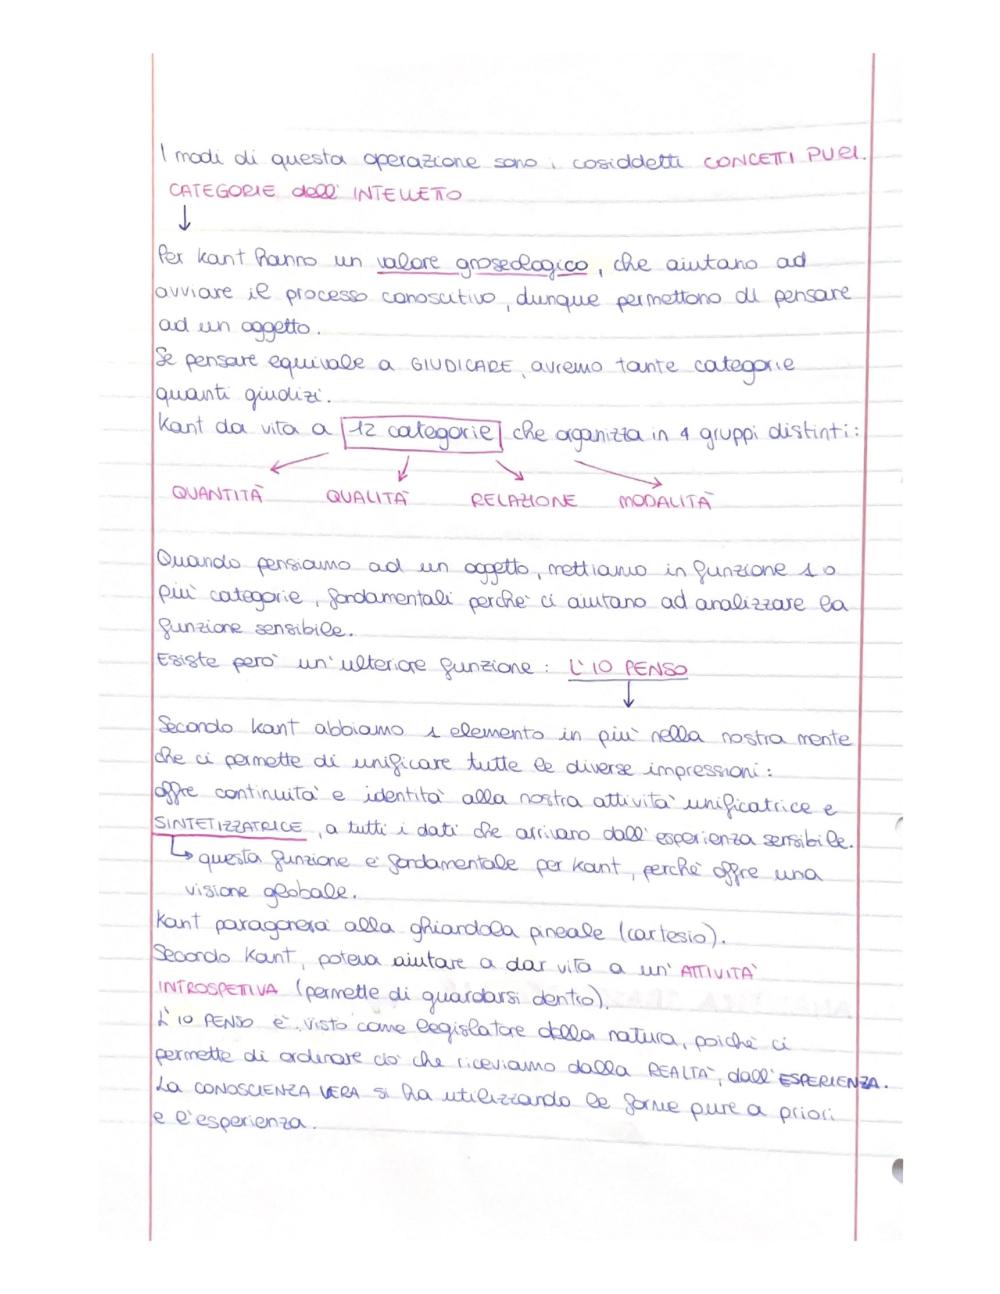 I modi di questa operazione sono i cosiddetti CONCETTI PURI.
CATEGORIE dell' INTELLETTO
↓
Per Kant hanno un valore groseologico, che aiutano ad
avviare il processo conoscitivo, dunque permettono di pensare
ad un oggetto.
Se pensare equivale a GIUDICARE, avremo tante categorie
quanti giudizi.
Kant da vita a 12 categorie che organizza in 4 gruppi distinti:
QUANTITÀ QUALITÀ RELAZIONE MODALITÀ
Quando pensiamo ad un oggetto, mettiamo in funzione 1 o
più categorie, fondamentali perchè ci aiutano ad analizzare la
funzione sensibile.
Esiste però un'ulteriore funzione: L'IO PENSO
↓
Secondo Kant abbiamo 1 elemento in più nella nostra mente
che ci permette di unificare tutte le diverse impressioni:
offre continuità e identità alla nostra attività unificatrice e
SINTETIZZATRICE, a tutti i dati che arrivano dall'esperienza sensibile.
↳ questa funzione è fondamentale per Kant, perchè offre una
visione globale.
Kant paragonerà alla ghiandola pineale (cartesio).
Secondo Kant, poteva aiutare a dar vita a un' ATTIVITÀ
INTROSPETIVA (permette di guardarsi dentro).
L'IO PENSO è visto come legislatore della natura, poichè ci
permette di ordinare ciò che riceviamo dalla REALTÀ, dall'ESPERIENZA.
La CONOSCIENZA VERA si ha utilizzando le forme pure a priori
e l'esperienza.